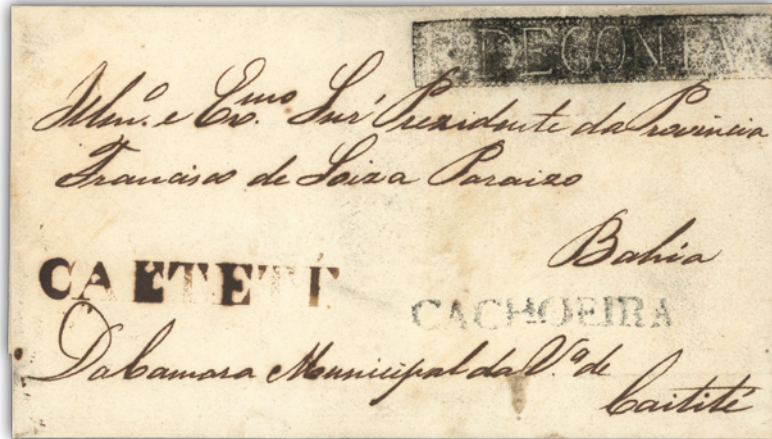 R.º DE CONTA
Illm.º e Exmo. Snr' Prezidente da Provincia
Francisco de Soiza Paraizo
Bahia
CAETETÉ
CACHOEIRA
Da Camara Municipal da V.ª de
Caitité